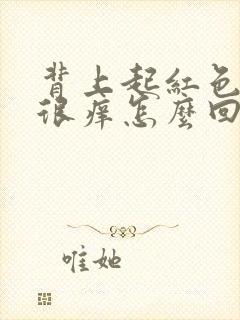 背上起紅色
很痒怎麼回
唯她